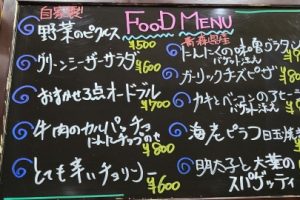 FOOD MENU
自家製
野菜のピクルス
¥500
グリーンシーザーサラダ
¥600
おすすめ3点オードブル
¥700
牛肉のカルパッチョ
にんにくチップのせ
¥800
とても辛いチョリソー
¥600
青森県産
にんにくの味噌グラタン
バケット添え
ガーリックチーズピザ
¥8
カキとベーコンのアヒージョ
バケット添え
海老ピラフ 目玉焼
明太子と大葉の
スパゲッティ